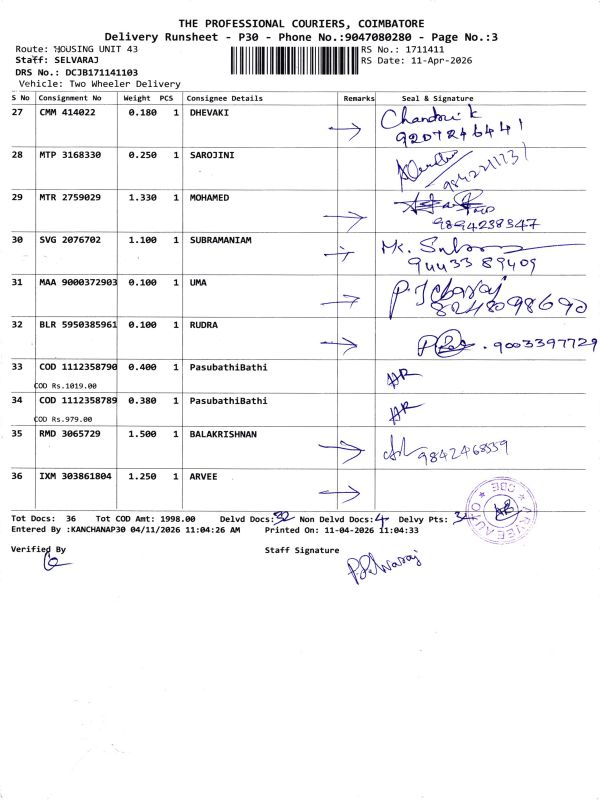 THE PROFESSIONAL COURIERS, COIMBATORE
Delivery Runsheet - P30 - Phone No.:9047080280 - Page No.:3
Route: HOUSING UNIT 43
RS No.: 1711411
Staff: SELVARAJ
RS Date: 11-Apr-2026
DRS No.: DCJB171141103
Vehicle: Two Wheeler Delivery
S No Consignment No Weight PCS Consignee Details Remarks Seal & Signature
27 CMM 414022 0.180 1 DHEVAKI
9207246441
28 MTP 3168330 0.250 1 SAROJINI
29 MTR 2759029 1.330 1 MOHAMED
9894238347
30 SVG 2076702 1.100 1 SUBRAMANIAM
94433 89409
31 MAA 9000372903 0.100 1 UMA
8248098690
32 BLR 5950385961 0.100 1 RUDRA
9003397729
33 COD 1112358790 0.400 1 PasubathiBathi
COD Rs.1019.00
34 COD 1112358789 0.380 1 PasubathiBathi
COD Rs.979.00
35 RMD 3065729 1.500 1 BALAKRISHNAN
9842468559
36 IXM 303861804 1.250 1 ARVEE
Tot Docs: 36 Tot COD Amt: 1998.00 Delvd Docs: 32 Non Delvd Docs: 4 Delvy Pts:
Entered By :KANCHANAP30 04/11/2026 11:04:26 AM Printed On: 11-04-2026 11:04:33
Verified By
Staff Signature
P. Selvaraj